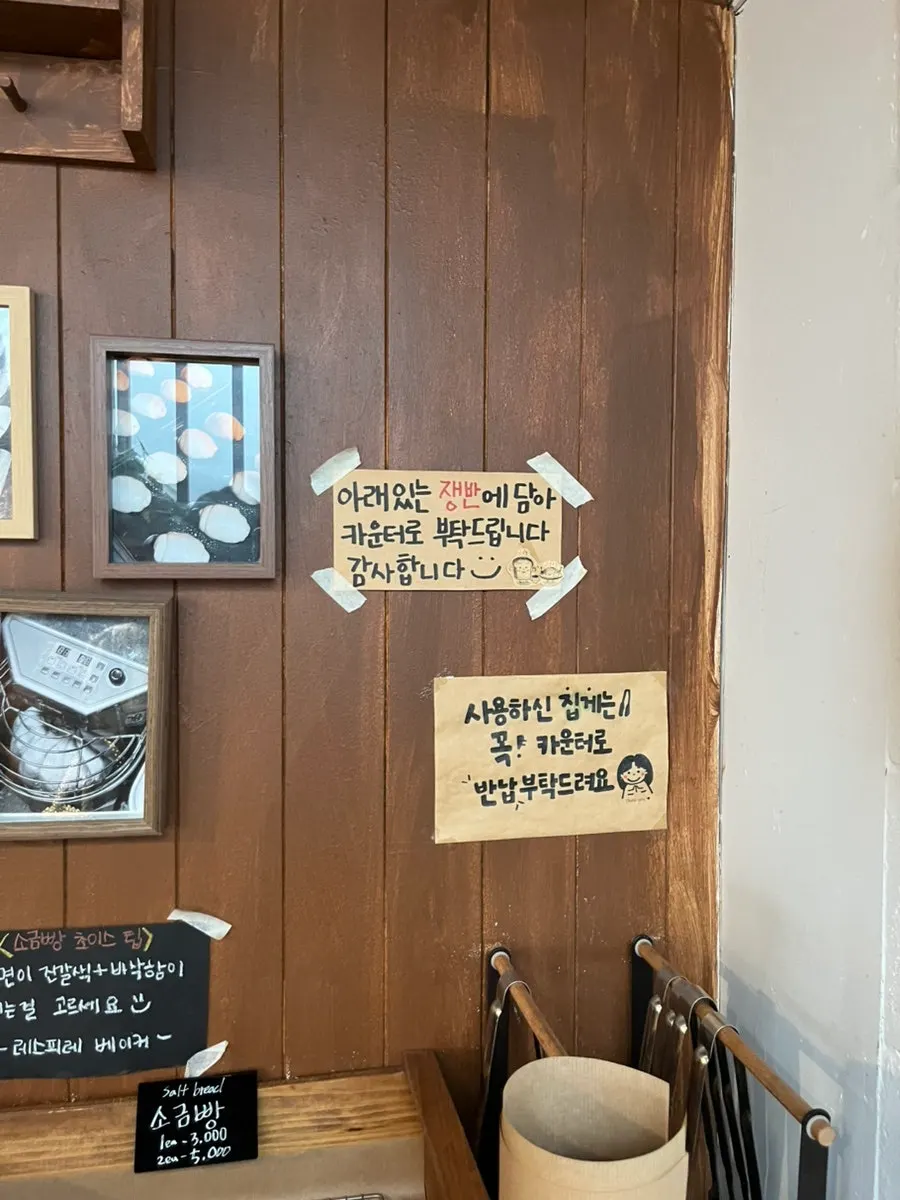 아래있는 쟁반에 담아
카운터로 부탁드립니다
감사합니다
사용하신 집게는
꼭! 카운터로
반납부탁드려요
<소금빵 초이스 팁>
면이 진갈색+바삭함이
는걸 고르세요
- 레스피레 베이커 -
Salt bread
소금빵
1ea - 3.000
2ea - 5.000